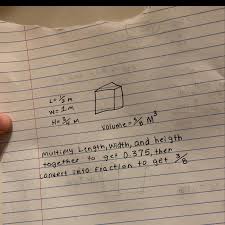 L = 1/2 m
W = 1 m
H = 3/4 m
Volume = 3/8 M³
multiply Length, width, and heigth
together to get 0.375, then
convert into fraction to get 3/8